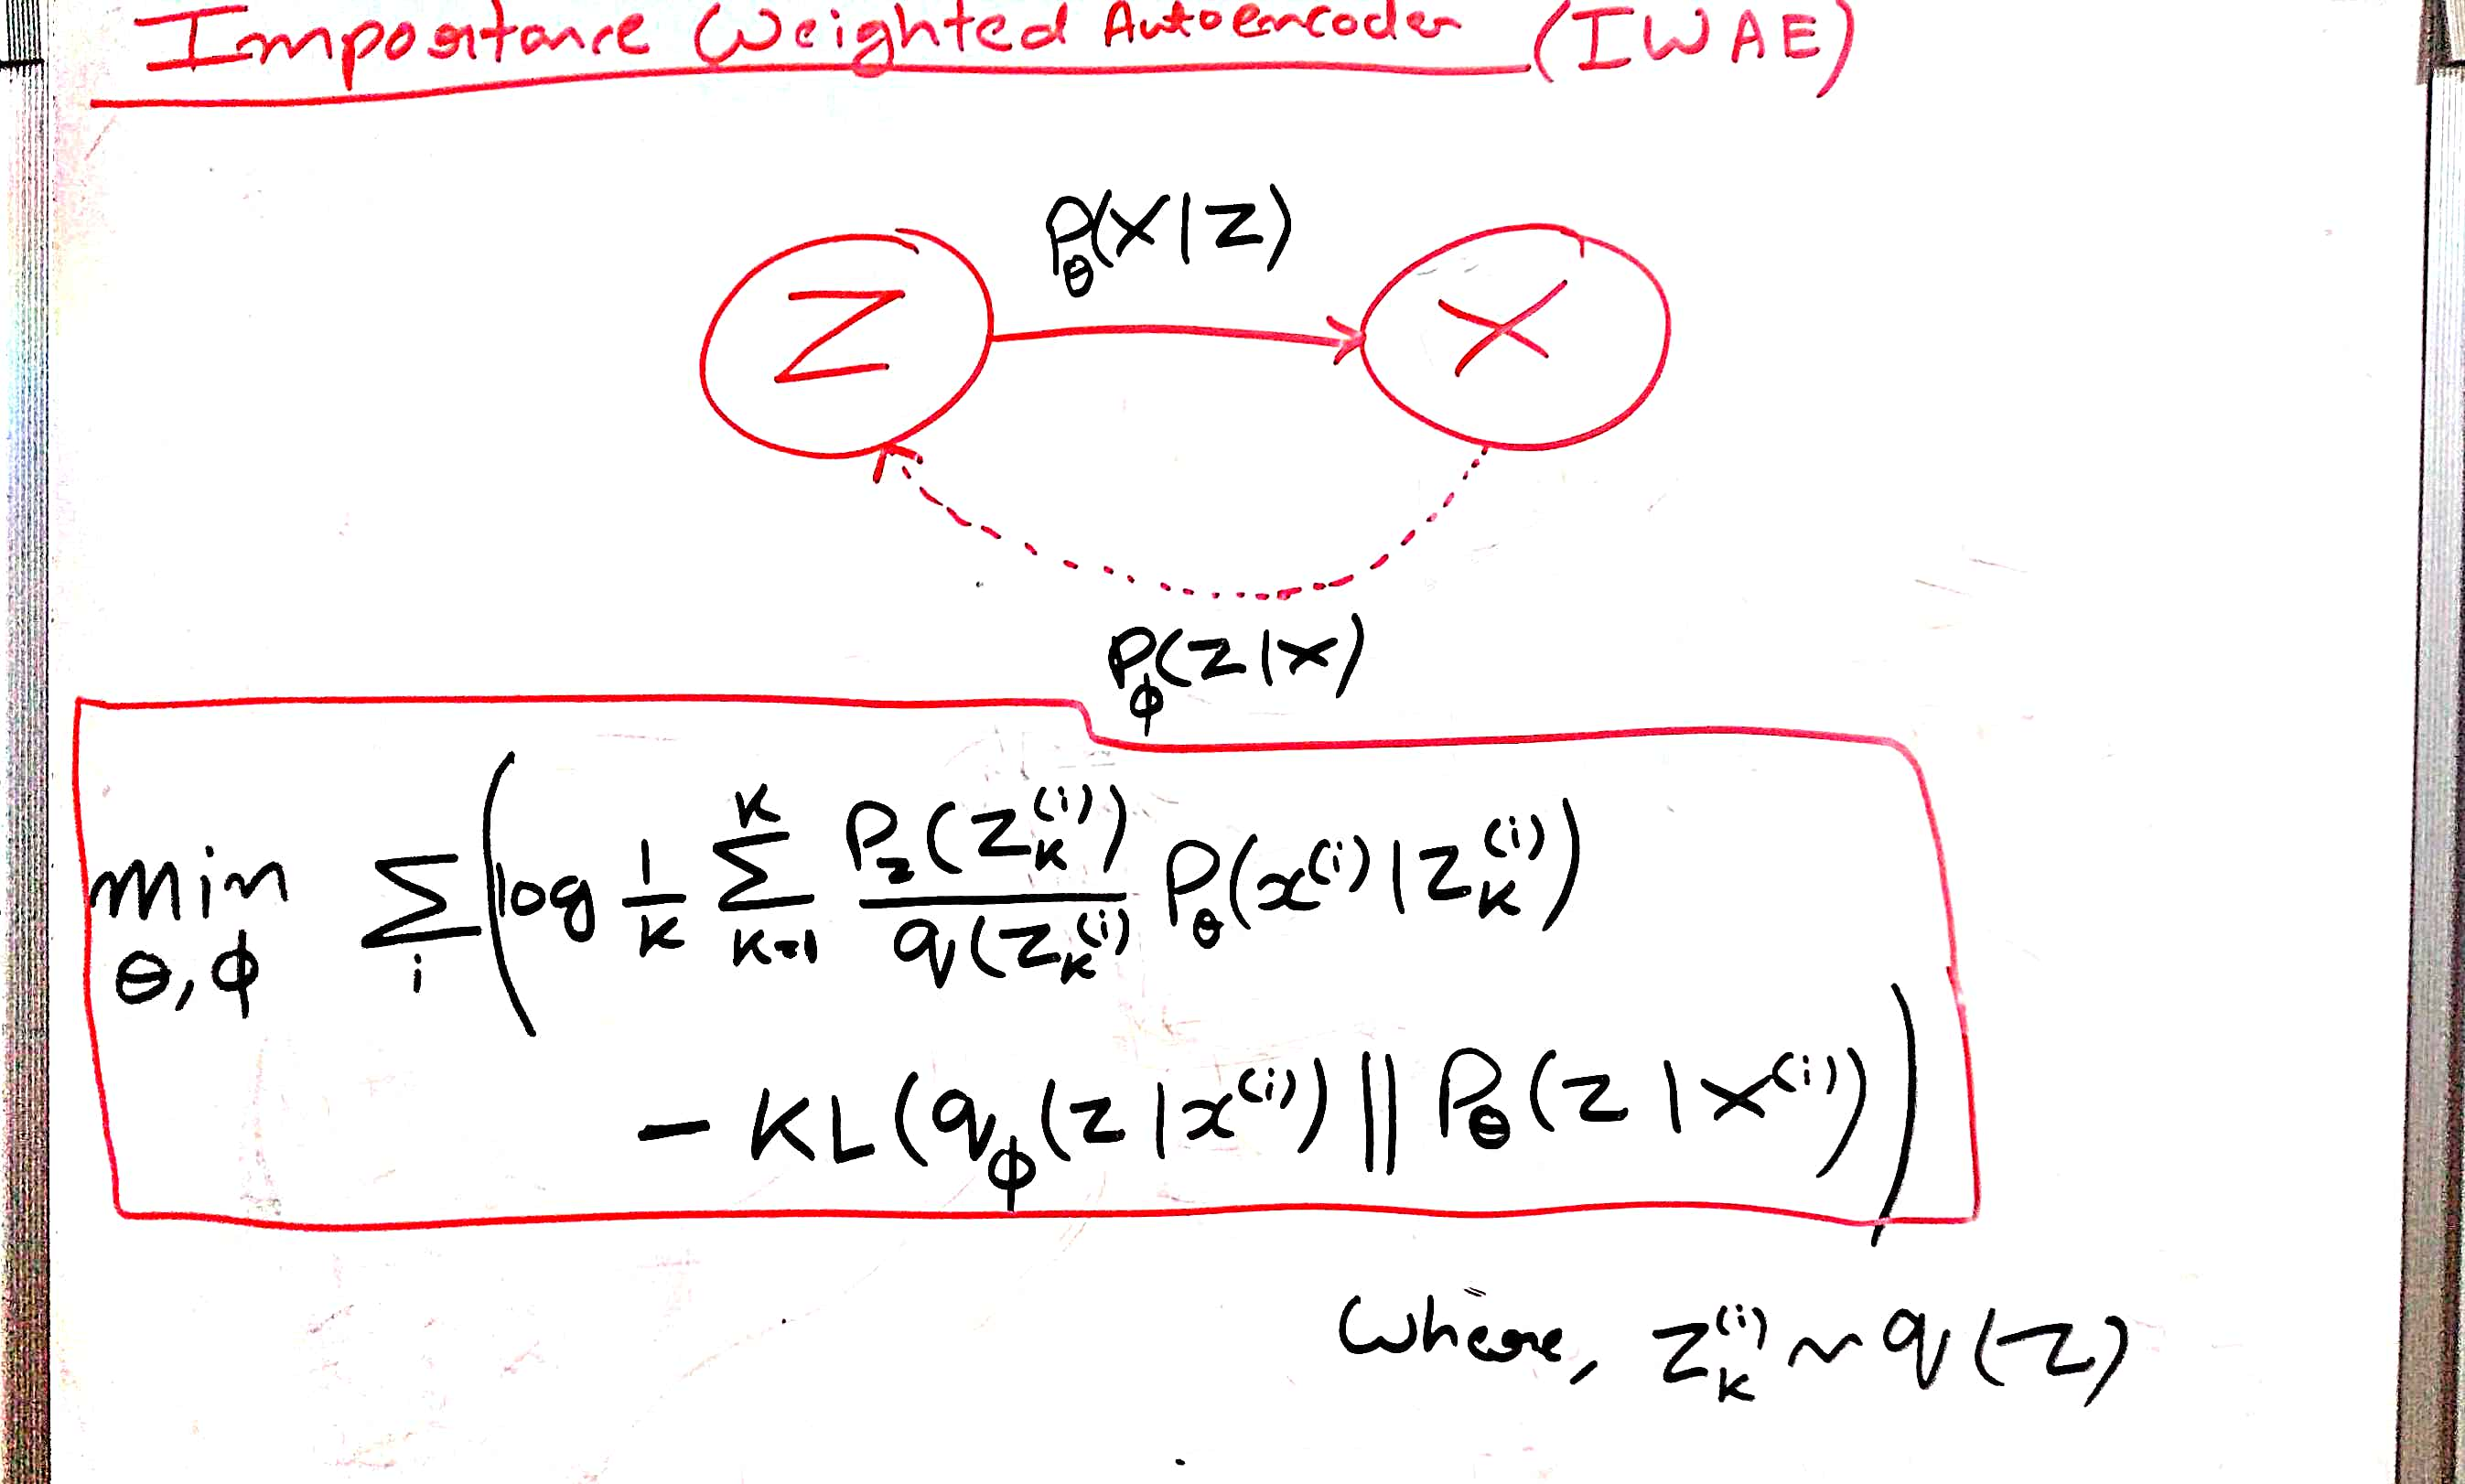 Importance Weighted Autoencoder (IWAE)
P_θ(X|Z)
Z
X
P_φ(Z|X)
min_{θ,φ} Σ_i (log 1/K Σ_{K=1}^{K} P_z(Z_K^{(i)}) / q(Z_K^{(i)}) P_θ(x^{(i)}|Z_K^{(i)})
- KL(q_φ(z|x^{(i)}) || P_θ(z|x^{(i)})))
Where, Z_K^{(i)} ~ q(z)